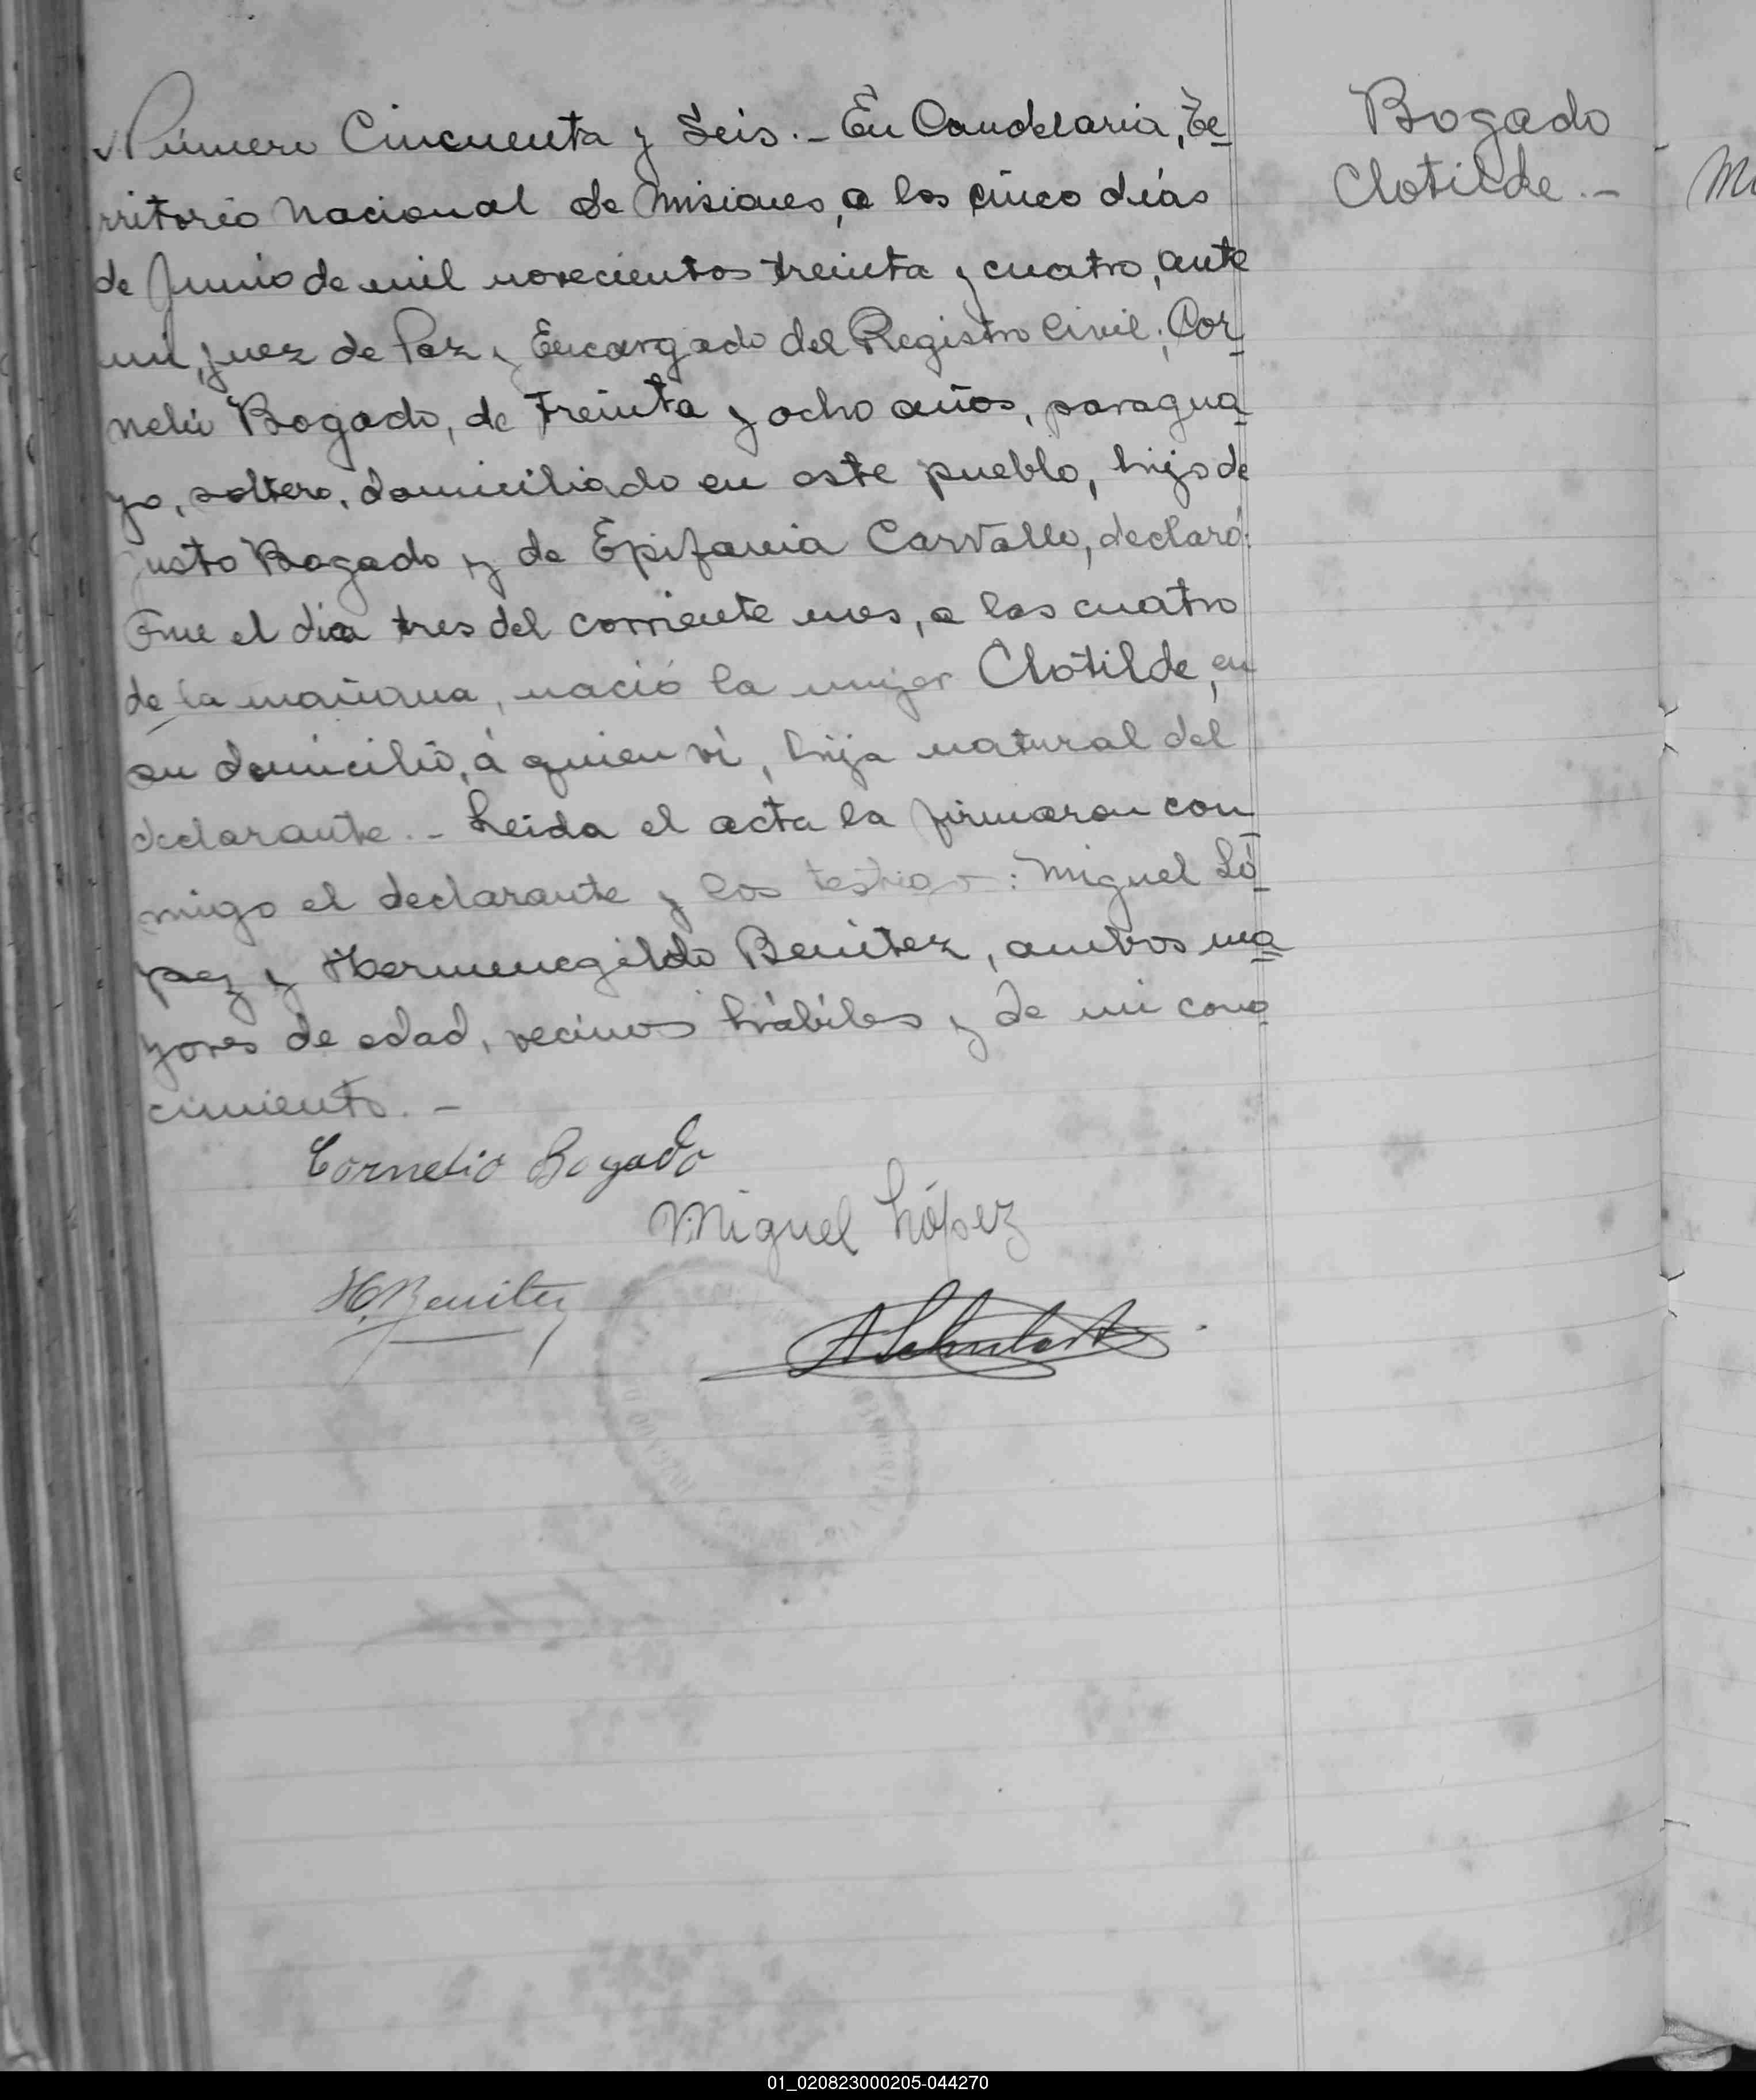 Número Cincuenta y Seis.- En Candelaria, Te-
rritorio Nacional de Misiones, a los cinco días
de Junio de mil novecientos treinta y cuatro, ante
mi, Juez de Paz y Encargado del Registro Civil, Cor-
nelio Bogado, de treinta y ocho años, paragua-
yo, soltero, domiciliado en este pueblo, hijo de
Justo Bogado y de Epifania Carvallo, declaró:
Que el dia tres del corriente mes, a las cuatro
de la mañana, nació la mujer Clotilde, en
su domicilio, á quien ví, hija natural del
declarante.- Leida el acta la firmaron con-
migo el declarante y los testigos: Miguel Ló-
pez y Hermenegildo Benitez, ambos ma-
yores de edad, vecinos hábiles y de mi cono-
cimiento.-
Cornelio Bogado
Miguel López
H. Benitez
Bogado
Clotilde.-
01_020823000205-044270